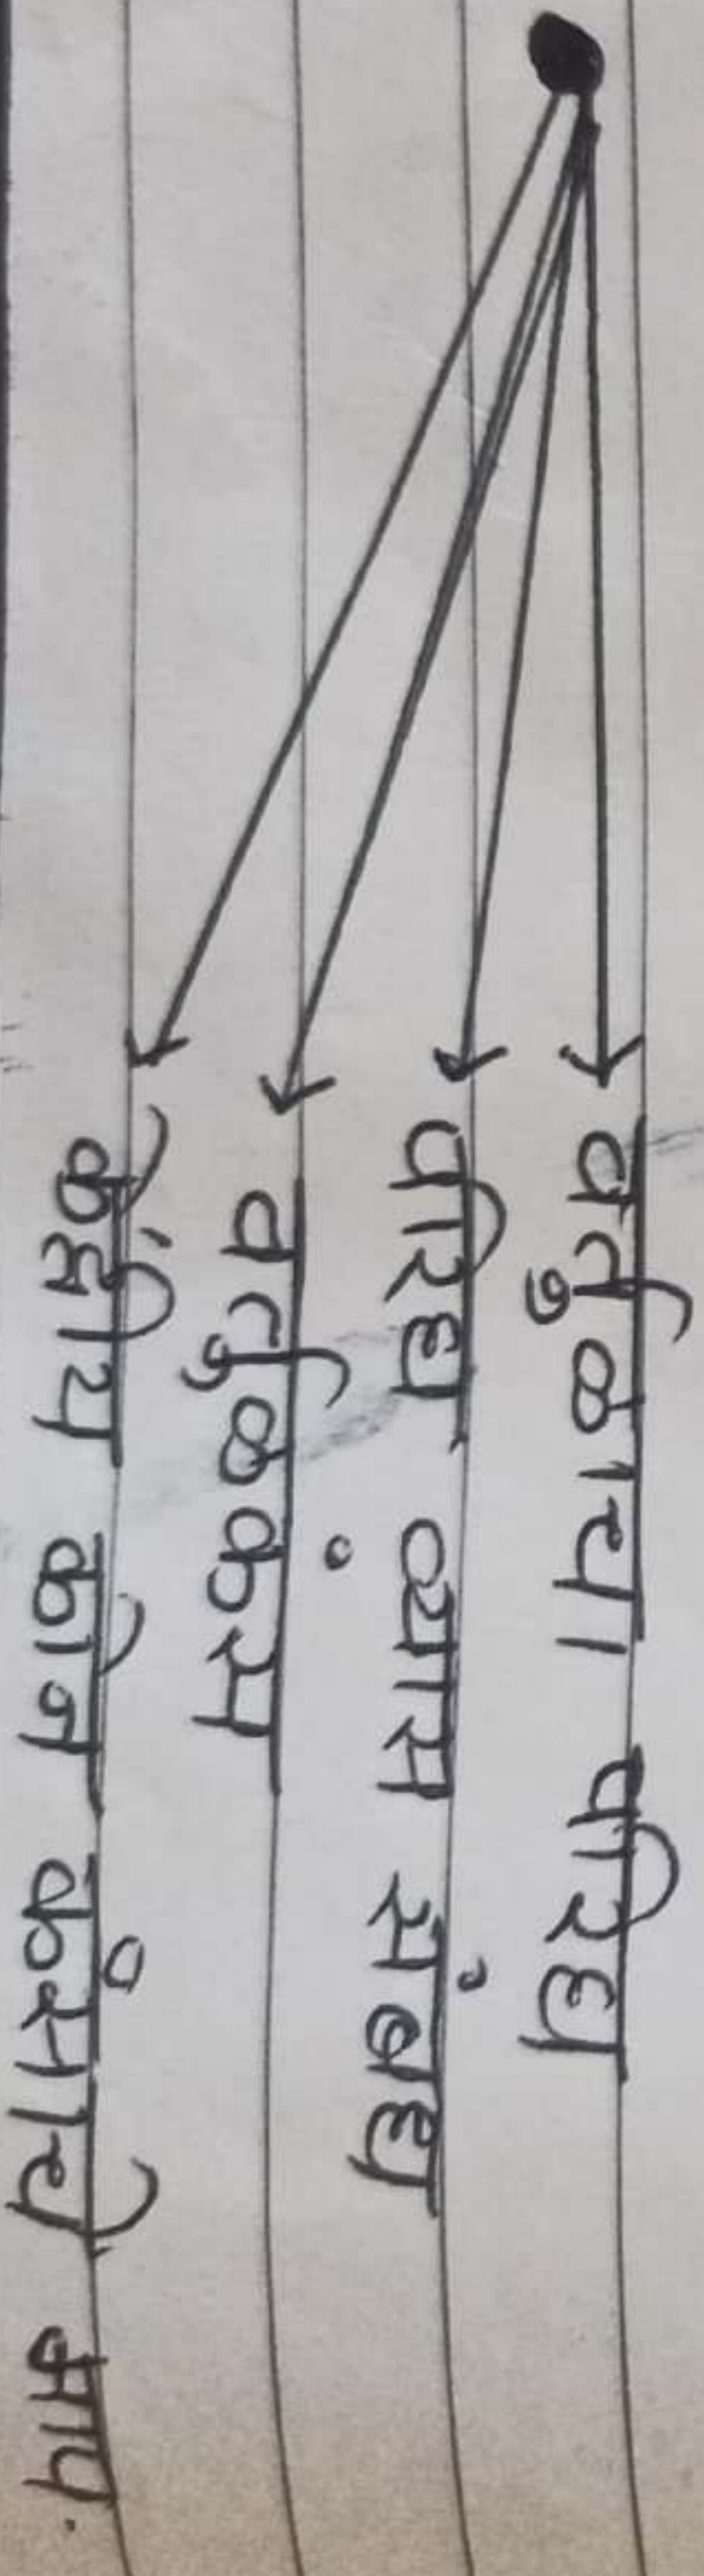 वर्तुळाचा परिघ
परिघ व्यास संबंध
वर्तुळकंस
केंद्रीय कोन कंसाचे माप.